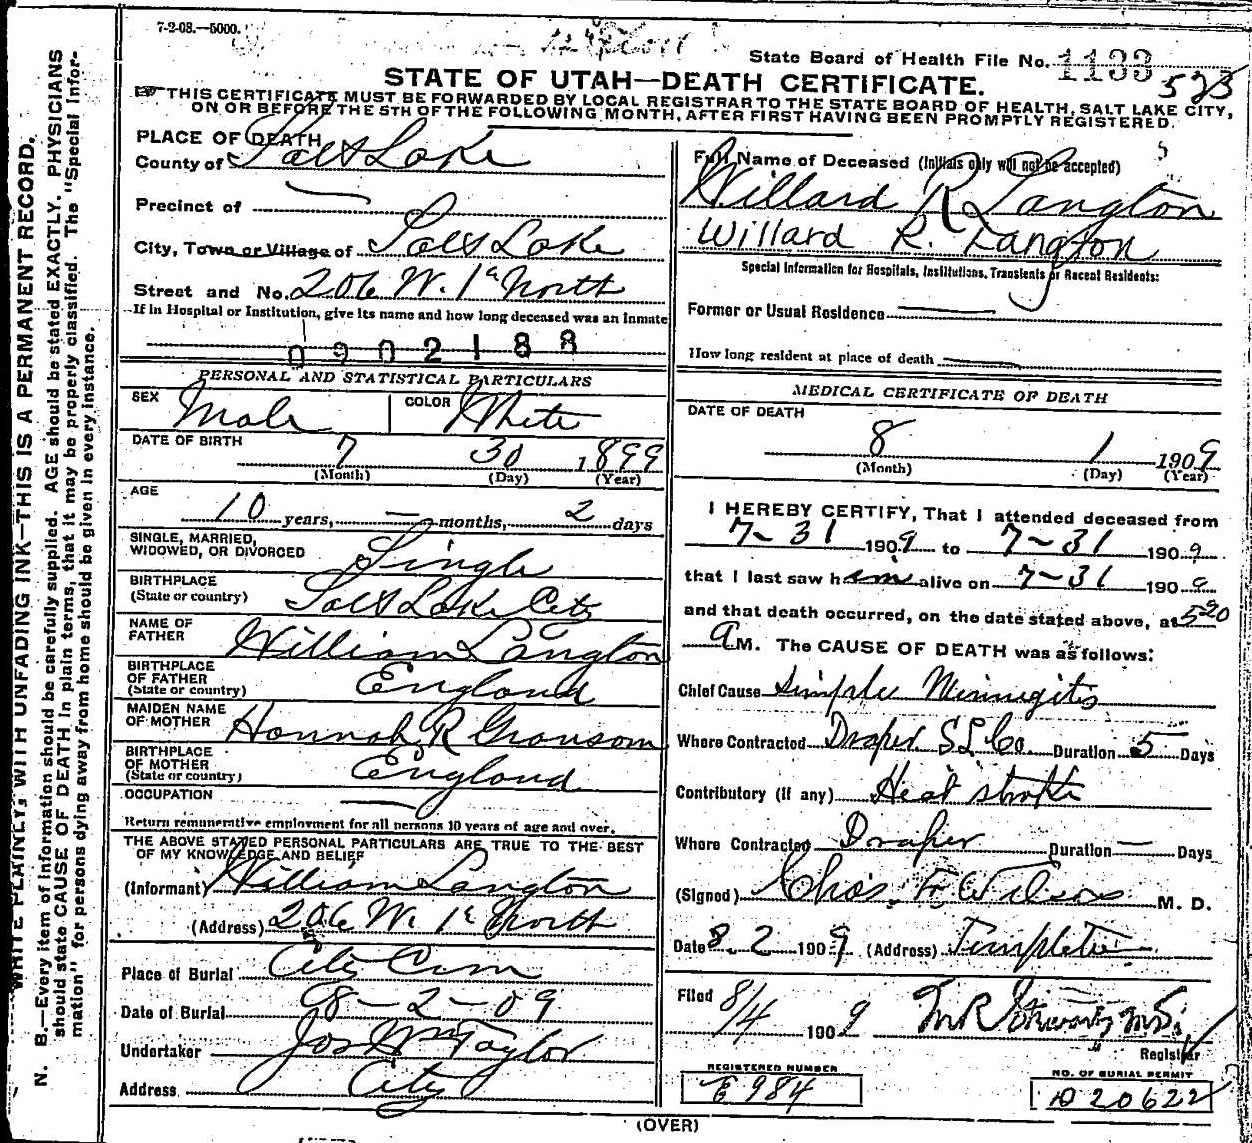 7-2-08.—5000.
State Board of Health File No. 1133 523
STATE OF UTAH—DEATH CERTIFICATE.
THIS CERTIFICATE MUST BE FORWARDED BY LOCAL REGISTRAR TO THE STATE BOARD OF HEALTH, SALT LAKE CITY,
ON OR BEFORE THE 5TH OF THE FOLLOWING MONTH, AFTER FIRST HAVING BEEN PROMPTLY REGISTERED.
WRITE PLAINLY, WITH UNFADING INK—THIS IS A PERMANENT RECORD.
N. B.—Every item of information should be carefully supplied. AGE should be stated EXACTLY. PHYSICIANS
should state CAUSE OF DEATH in plain terms, that it may be properly classified. The "Special Infor-
mation" for persons dying away from home should be given in every instance.
PLACE OF DEATH
County of Salt Lake
Precinct of —
City, Town or Village of Salt Lake
Street and No. 206 W. 1st North
If in Hospital or Institution, give its name and how long deceased was an Inmate
0902188
PERSONAL AND STATISTICAL PARTICULARS
SEX Male COLOR White
DATE OF BIRTH
7 30 1899
(Month) (Day) (Year)
AGE
10 years, — months, 2 days
SINGLE, MARRIED,
WIDOWED, OR DIVORCED Single
BIRTHPLACE
(State or country) Salt Lake City
NAME OF
FATHER William Langton
BIRTHPLACE
OF FATHER
(State or country) England
MAIDEN NAME
OF MOTHER Hannah R Gransom
BIRTHPLACE
OF MOTHER
(State or country) England
OCCUPATION —
Return remunerative employment for all persons 10 years of age and over.
THE ABOVE STATED PERSONAL PARTICULARS ARE TRUE TO THE BEST
OF MY KNOWLEDGE AND BELIEF
(Informant) William Langton
(Address) 206 W. 1st North
Place of Burial City Cem
Date of Burial 8-2-09
Undertaker Jos Wm Taylor
Address City
Full Name of Deceased (Initials only will not be accepted)
Willard R Langton
Willard R. Langton
Special Information for Hospitals, Institutions, Transients or Recent Residents:
Former or Usual Residence —
How long resident at place of death —
MEDICAL CERTIFICATE OF DEATH
DATE OF DEATH
8 1 1909
(Month) (Day) (Year)
I HEREBY CERTIFY, That I attended deceased from
7-31 1909 to 7-31 1909
that I last saw him alive on 7-31 1909
and that death occurred, on the date stated above, at 5 20
a M. The CAUSE OF DEATH was as follows:
Chief Cause Simple Minnegitis
Where Contracted Draper S L Co. Duration 5 Days
Contributory (if any) Heat stroke
Where Contracted Draper Duration — Days
(Signed) Chas. F. Wilcox M. D.
Date 8-2 1909 (Address) Templeton
Filed 8/4 1909 M.D.
Registrar
REGISTERED NUMBER
E 984
NO. OF BURIAL PERMIT
D 20622
(OVER)